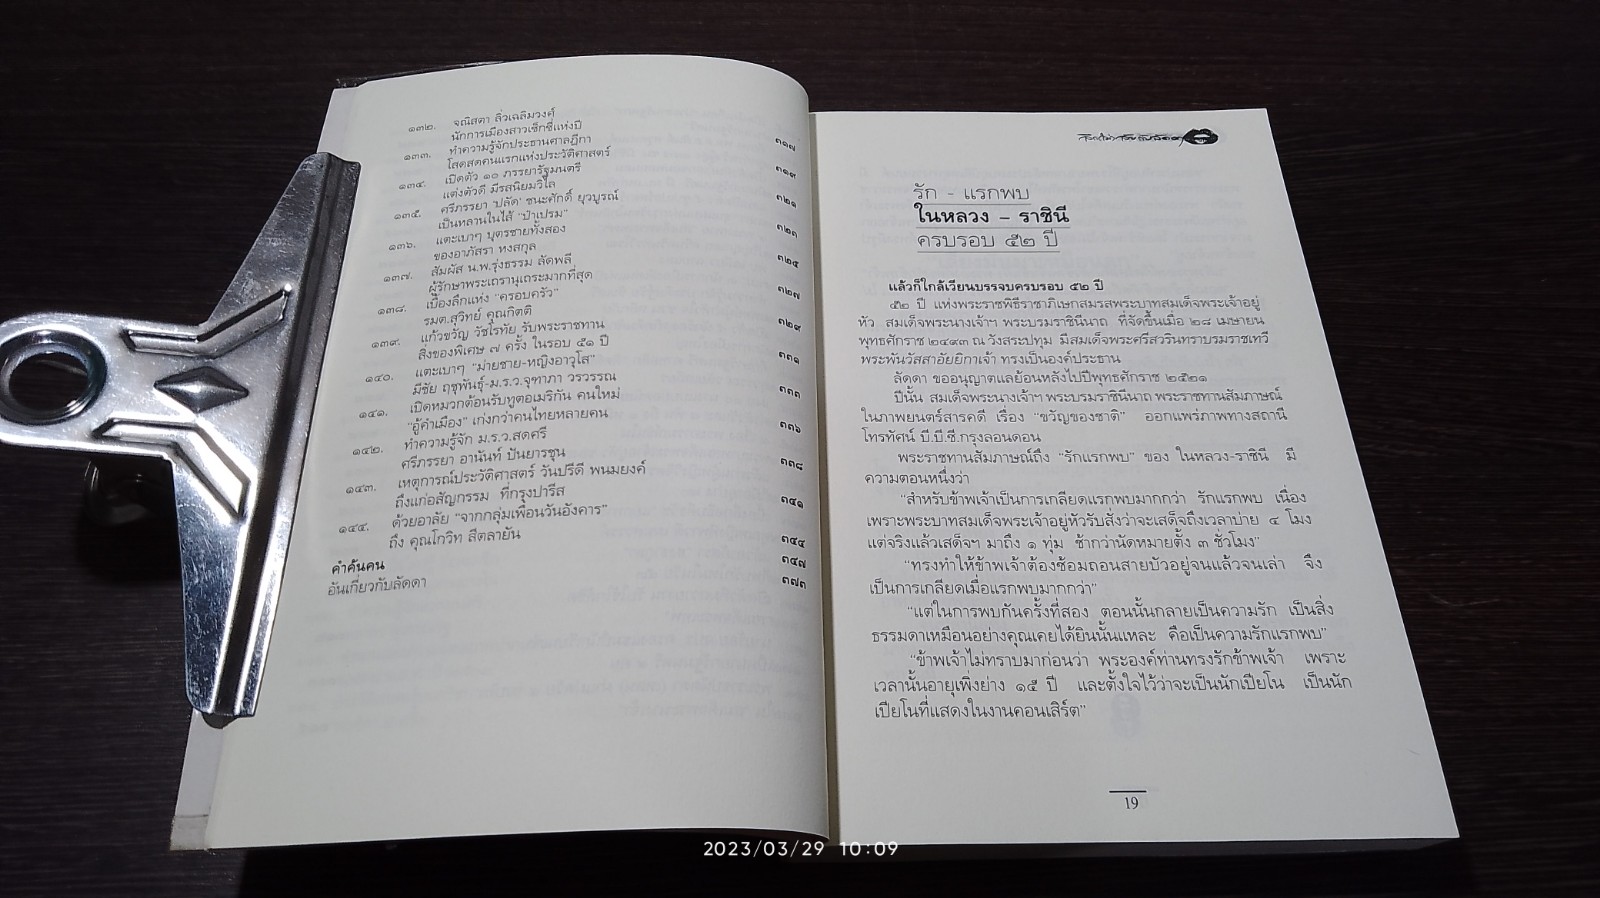 ๑๓๒. จณิสตา ลิ่วเฉลิมวงศ์
นักการเมืองสาวเซ็กซี่แห่งปี ๓๑๗
๑๓๓. ทำความรู้จักประธานศาลฎีกา
โสดสดคนแรกแห่งประวัติศาสตร์ ๓๑๙
๑๓๔. เปิดตัว ๑๐ ภรรยารัฐมนตรี
แต่งตัวดี มีรสนิยมวิไล ๓๒๑
๑๓๕. ศรีภรรยา 'ปลัด' ชนะศักดิ์ ยุวบูรณ์
เป็นหลานในไส้ "ป๋าเปรม" ๓๒๓
๑๓๖. แตะเบาๆ บุตรชายทั้งสอง
ของอาภัสรา หงสกุล ๓๒๕
๑๓๗. สัมผัส น.พ.รุ่งธรรม ลัดพลี
ผู้รักษาพระเถรานุเถระมากที่สุด ๓๒๗
๑๓๘. เบื้องลึกแห่ง "ครอบครัว"
รมต.สุวิทย์ คุณกิตติ ๓๒๙
๑๓๙. แก้วขวัญ วัชโรทัย รับพระราชทาน
สิ่งของพิเศษ ๗ ครั้ง ในรอบ ๕๑ ปี ๓๓๑
๑๔๐. แตะเบาๆ "ม่ายชาย-หญิงอาวุโส"
มีชัย ฤชุพันธุ์-ม.ร.ว.จุฑาภา วรวรรณ ๓๓๓
๑๔๑. เปิดหมวกต้อนรับทูตอเมริกัน คนใหม่
"อู้คำเมือง" เก่งกว่าคนไทยหลายคน ๓๓๖
๑๔๒. ทำความรู้จัก ม.ร.ว.สดศรี
ศรีภรรยา อานันท์ ปันยารชุน ๓๓๘
๑๔๓. เหตุการณ์ประวัติศาสตร์ วันปรีดี พนมยงค์
ถึงแก่อสัญกรรม ที่กรุงปารีส ๓๔๑
๑๔๔. ด้วยอาลัย "จากกลุ่มเพื่อนวันอังคาร"
ถึง คุณโกวิท สีตลายัน ๓๔๔
คำค้นคน ๓๔๗
อันเกี่ยวกับลัดดา ๓๗๓
รัก - แรกพบ
ในหลวง – ราชินี
ครบรอบ ๕๒ ปี
แล้วก็ใกล้เวียนบรรจบครบรอบ ๕๒ ปี
๕๒ ปี แห่งพระราชพิธีราชาภิเษกสมรสพระบาทสมเด็จพระเจ้าอยู่
หัว สมเด็จพระนางเจ้าฯ พระบรมราชินีนาถ ที่จัดขึ้นเมื่อ ๒๘ เมษายน
พุทธศักราช ๒๔๙๓ ณ วังสระปทุม มีสมเด็จพระศรีสวรินทราบรมราชเทวี
พระพันวัสสาอัยยิกาเจ้า ทรงเป็นองค์ประธาน
ลัดดา ขออนุญาตแลย้อนหลังไปปีพุทธศักราช ๒๕๒๑
ปีนั้น สมเด็จพระนางเจ้าฯ พระบรมราชินีนาถ พระราชทานสัมภาษณ์
ในภาพยนตร์สารคดี เรื่อง "ขวัญของชาติ" ออกแพร่ภาพทางสถานี
โทรทัศน์ บี.บี.ซี.กรุงลอนดอน
พระราชทานสัมภาษณ์ถึง "รักแรกพบ" ของ ในหลวง-ราชินี มี
ความตอนหนึ่งว่า
"สำหรับข้าพเจ้าเป็นการเกลียดแรกพบมากกว่า รักแรกพบ เนื่อง
เพราะพระบาทสมเด็จพระเจ้าอยู่หัวรับสั่งว่าจะเสด็จถึงเวลาบ่าย ๔ โมง
แต่จริงแล้วเสด็จฯ มาถึง ๑ ทุ่ม ช้ากว่านัดหมายตั้ง ๓ ชั่วโมง"
"ทรงทำให้ข้าพเจ้าต้องซ้อมถอนสายบัวอยู่จนแล้วจนเล่า จึง
เป็นการเกลียดเมื่อแรกพบมากกว่า"
"แต่ในการพบกันครั้งที่สอง ตอนนั้นกลายเป็นความรัก เป็นสิ่ง
ธรรมดาเหมือนอย่างคุณเคยได้ยินนั้นแหละ คือเป็นความรักแรกพบ"
"ข้าพเจ้าไม่ทราบมาก่อนว่า พระองค์ท่านทรงรักข้าพเจ้า เพราะ
เวลานั้นอายุเพิ่งย่าง ๑๕ ปี และตั้งใจไว้ว่าจะเป็นนักเปียโน เป็นนัก
เปียโนที่แสดงในงานคอนเสิร์ต"
19
2023/03/29 10:09